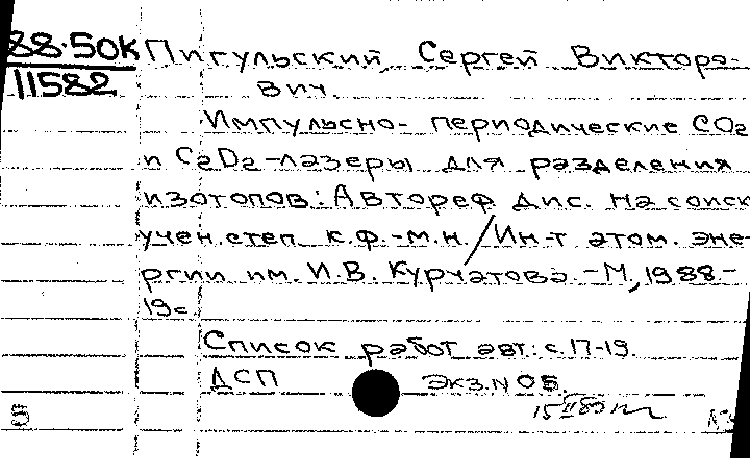 88-50К Пигульский, Сергей Викторо-
11582 вич.
Импульсно-периодические CO2
и C2D2-лазеры для разделения
изотопов: Автореф дис. на соиск
учен. степ к.ф.-м.н. / Ин-т атом. эне-
ргии им. И.В. Курчатова. - М, 1988-
19с.
Список работ авт: с. 17-19.
ДСП Экз. N 05.